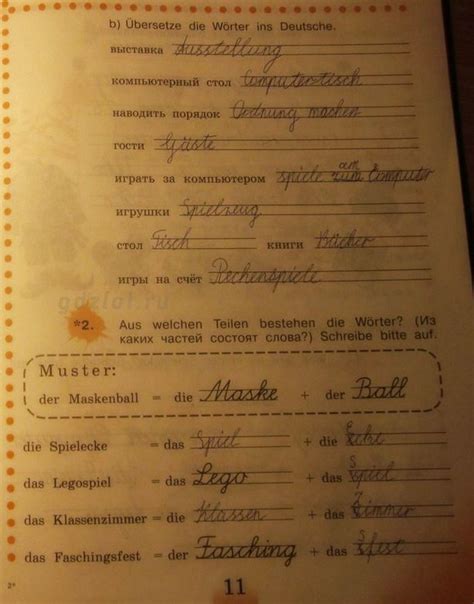 b) Übersetze die Wörter ins Deutsche.
выставка Ausstellung
компьютерный стол Computerstisch
наводить порядок Ordnung machen
гости Gäste
играть за компьютером spiele am zum Computer
игрушки Spielzeug
стол Tisch книги Bücher
игры на счёт Rechenspiele
gdzlol.ru
*2. Aus welchen Teilen bestehen die Wörter? (Из
каких частей состоят слова?) Schreibe bitte auf.
Muster:
der Maskenball = die Maske + der Ball
die Spielecke = das Spiel + die Ecke
das Legospiel = das Lego + das Spiel
das Klassenzimmer = die Klassen + das Zimmer
das Faschingsfest = der Fasching + das sfest
2*
11